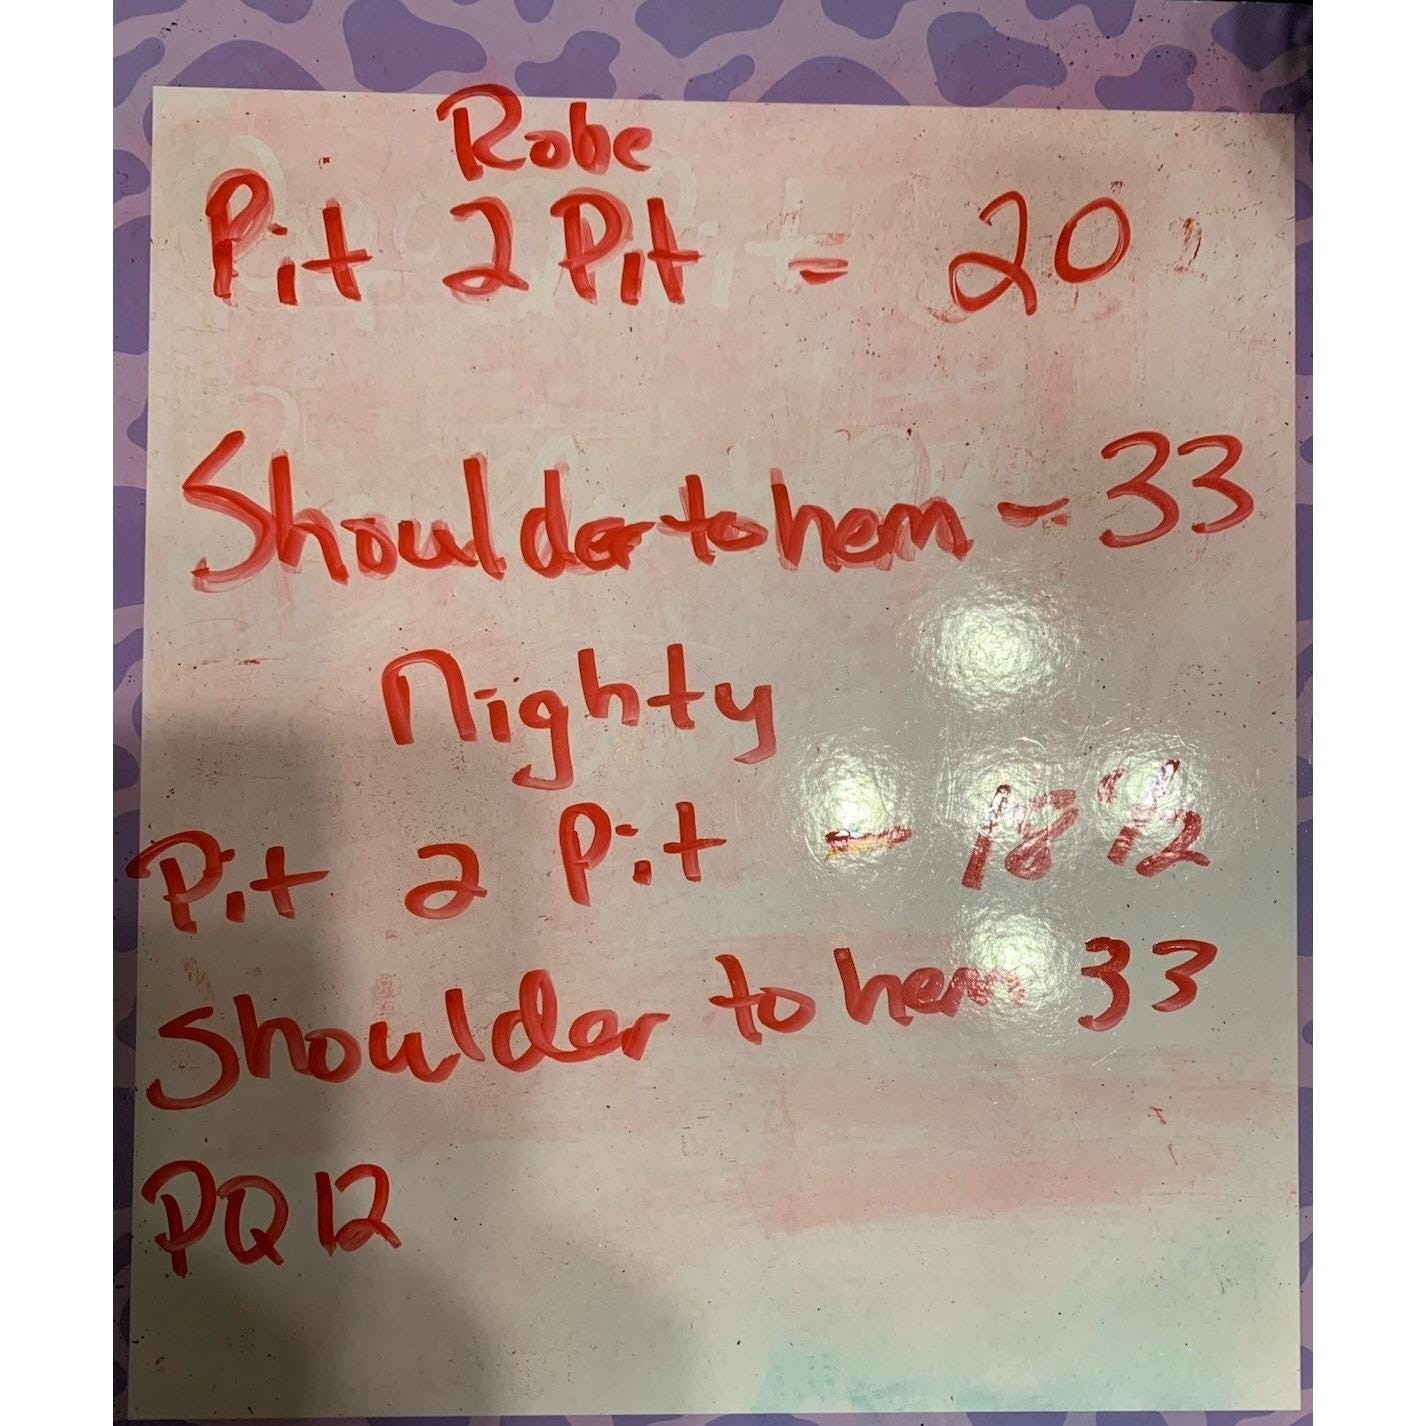 Robe
Pit 2 Pit = 20
Shoulder to hem - 33
Nighty
Pit 2 Pit - 18 1/2
Shoulder to hem 33
PQ12